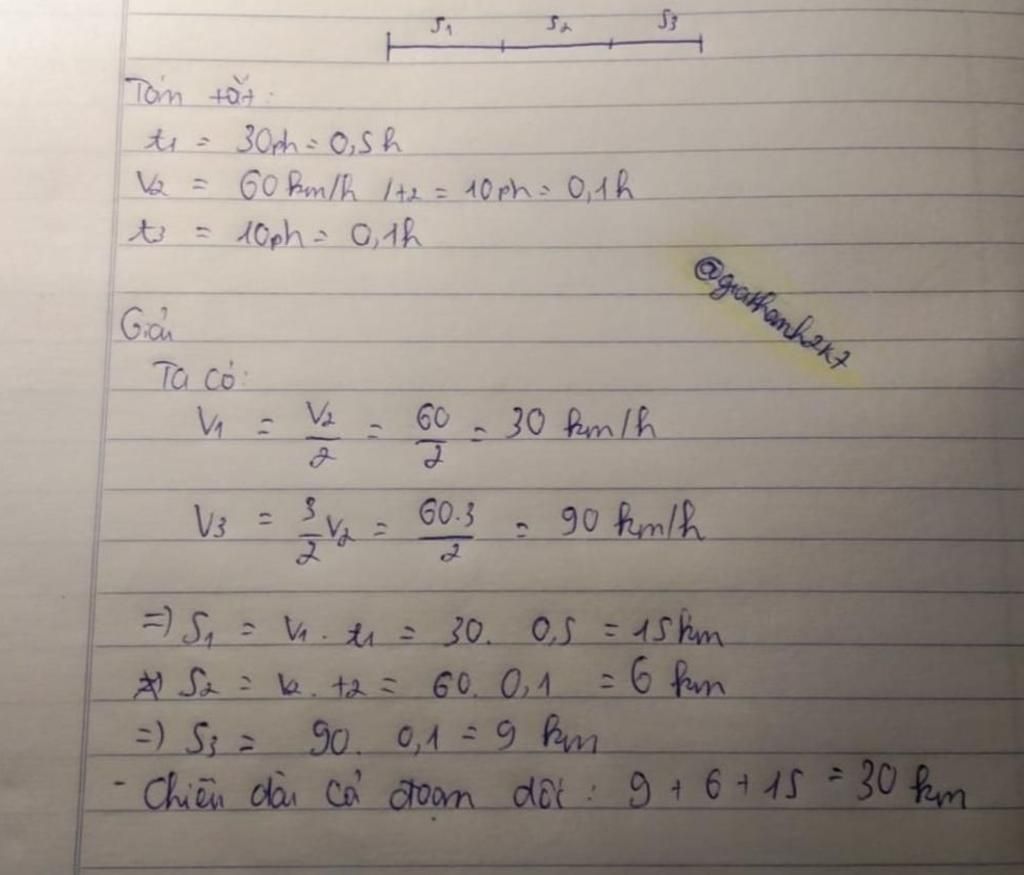 S1 S2 S3
Tóm tắt:
t1 = 30ph = 0,5h
V2 = 60 km/h /t2 = 10ph = 0,1h
t3 = 10ph = 0,1h
@giathanh2k7
Giải
Ta có:
V1 = V2/2 = 60/2 = 30 km/h
V3 = 3/2 V2 = 60.3/2 = 90 km/h
=) S1 = V1. t1 = 30. 0,5 = 15km
=) S2 = V2. t2 = 60. 0,1 = 6 km
=) S3 = 90. 0,1 = 9 km
- Chiều dài cả đoạn dốc: 9 + 6 + 15 = 30 km